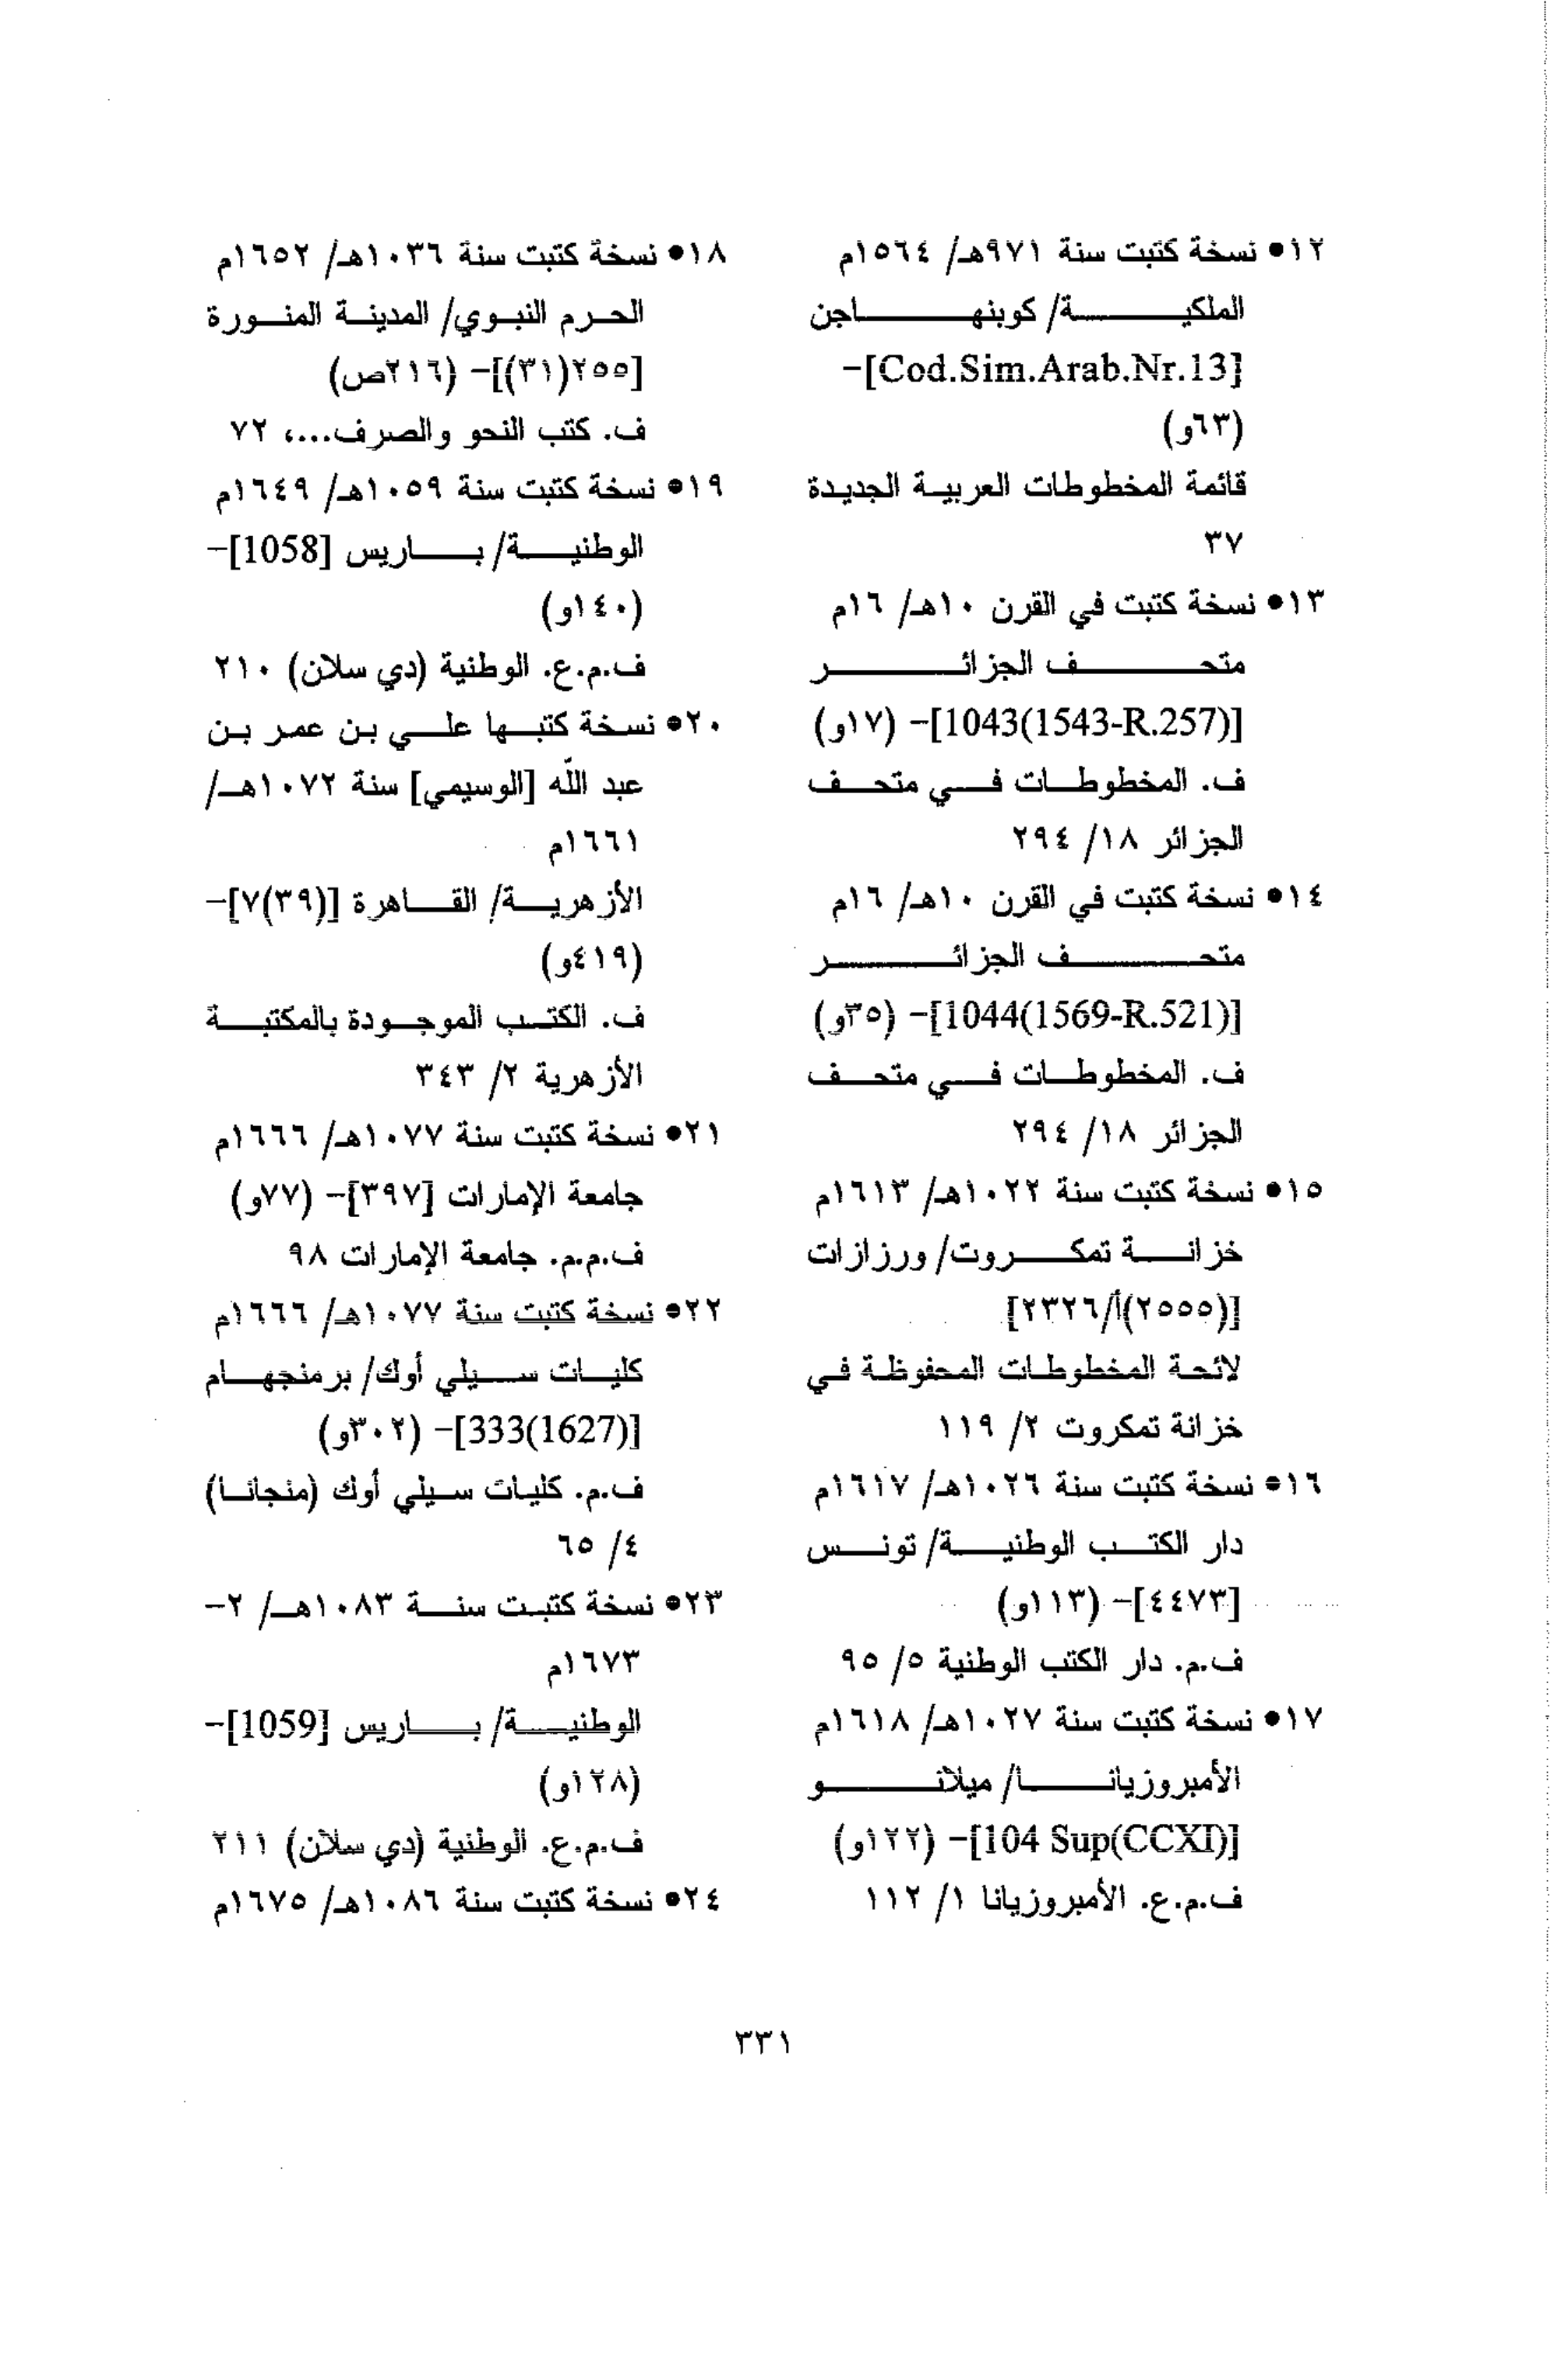 ١٢• نسخة كتبت سنة ٩٧١هـ/ ١٥٦٤م
الملكية/ كوبنهاجن
[Cod.Sim.Arab.Nr.13]-
(٦٣و)
قائمة المخطوطات العربية الجديدة
٣٧
١٣• نسخة كتبت في القرن ١٠هـ/ ١٦م
متحف الجزائر
[1043(1543-R.257)]- (١٧و)
ف. المخطوطات في متحف
الجزائر ١٨/ ٢٩٤
١٤• نسخة كتبت في القرن ١٠هـ/ ١٦م
متحف الجزائر
[1044(1569-R.521)]- (٣٥و)
ف. المخطوطات في متحف
الجزائر ١٨/ ٢٩٤
١٥• نسخة كتبت سنة ١٠٢٢هـ/ ١٦١٣م
خزانة تمكروت/ ورزازات
[(٢٥٥٥)أ/٢٣٢٦]
لائحة المخطوطات المحفوظة في
خزانة تمكروت ٢/ ١١٩
١٦• نسخة كتبت سنة ١٠٢٦هـ/ ١٦١٧م
دار الكتب الوطنية/ تونس
[٤٤٧٣]- (١١٣و)
ف.م. دار الكتب الوطنية ٥/ ٩٥
١٧• نسخة كتبت سنة ١٠٢٧هـ/ ١٦١٨م
الأمبروزيانا/ ميلانو
[104 Sup(CCXI)]- (١٢٢و)
ف.م.ع. الأمبروزيانا ١/ ١١٢
١٨• نسخة كتبت سنة ١٠٣٦هـ/ ١٦٥٢م
الحرم النبوي/ المدينة المنورة
[٢٥٥(٣١)]- (٢١٦ص)
ف. كتب النحو والصرف...، ٧٢
١٩• نسخة كتبت سنة ١٠٥٩هـ/ ١٦٤٩م
الوطنية/ باريس [1058]-
(١٤٠و)
ف.م.ع. الوطنية (دي سلان) ٢١٠
٢٠• نسخة كتبها علي بن عمر بن
عبد الله [الوسيمي] سنة ١٠٧٢هـ/
١٦٦١م
الأزهرية/ القاهرة [(٣٩)٧]-
(٤١٩و)
ف. الكتب الموجودة بالمكتبة
الأزهرية ٢/ ٣٤٣
٢١• نسخة كتبت سنة ١٠٧٧هـ/ ١٦٦٦م
جامعة الإمارات [٣٩٧]- (٧٧و)
ف.م.م. جامعة الإمارات ٩٨
٢٢• نسخة كتبت سنة ١٠٧٧هـ/ ١٦٦٦م
كليات سيلي أوك/ برمنجهام
[333(1627)]- (٣٠٢و)
ف.م. كليات سيلي أوك (منجانا)
٤/ ٦٥
٢٣• نسخة كتبت سنة ١٠٨٣هـ/ ٢-
١٦٧٣م
الوطنية/ باريس [1059]-
(١٢٨و)
ف.م.ع. الوطنية (دي سلان) ٢١١
٢٤• نسخة كتبت سنة ١٠٨٦هـ/ ١٦٧٥م
٣٣١